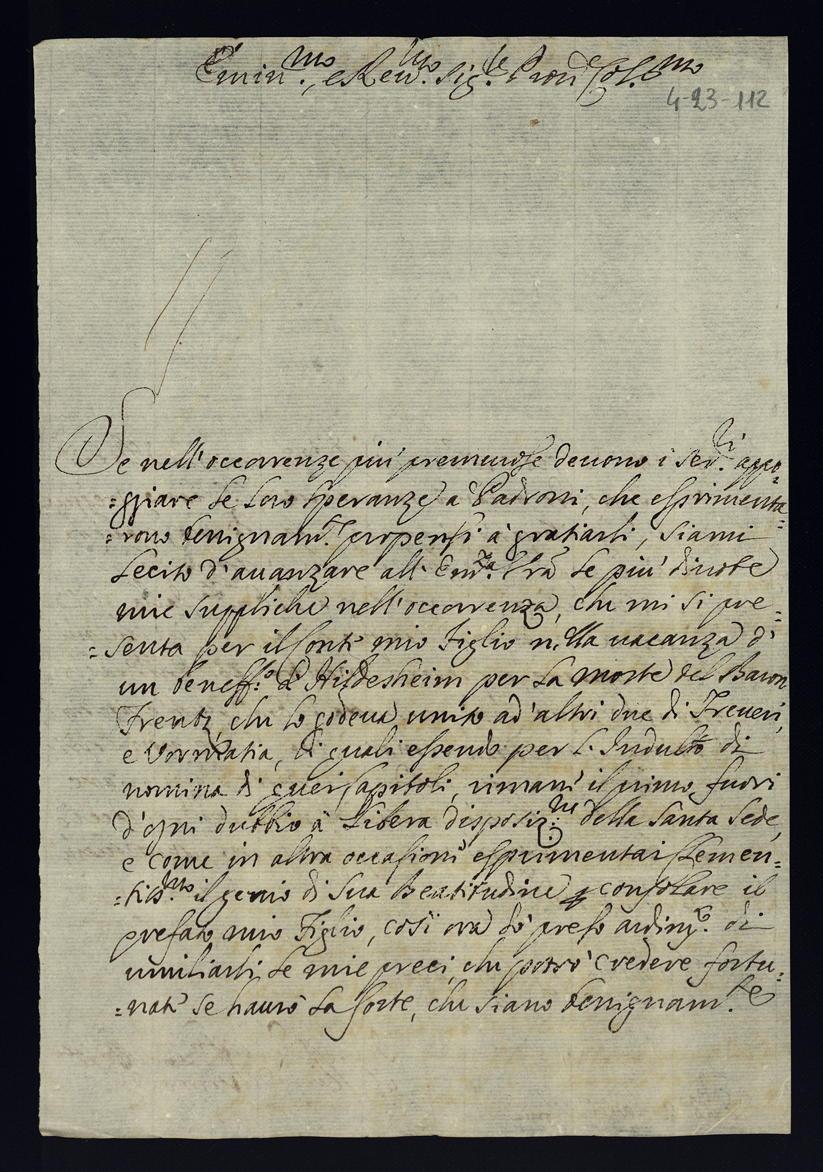 Emin.mo, e Rev.mo Sig.re Pron Col.mo
4-23-112
Se nell'occorrenze più premurose deuono i Ser.ri appo=
=ggiare le loro speranze à Padroni, che esprimenta=
=rono benignam.te propensi à gratiarli, siami
lecito d'auanzare all'Em.za Vrã le più diuote
mie suppliche nell'occorrenza, che mi si pre=
=senta per il Conte mio Figlio nella uacanza di
un beneff.o d'Hildesheim per la morte del Baron
Frentz, che lo godeua unito ad'altri due di Treueri,
e Vormatia, li quali essendo per l'Indulto di
nomina di quei Capitoli, rimane il primo fuori
d'ogni dubbio à libera disposiz.ne della Santa Sede,
e come in altra occasione esprimentai Clemen=
=tiss.mo il genio di Sua Beatitudine p consolare il
prefato mio Figlio, così ora hò preso ardim.to di
umiliarli le mie preci, che potrò credere fortu=
=nate se haurò la sorte, che siano benignam.te